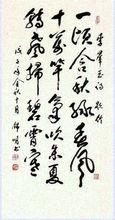 李群玉诗 题竹
一顷含秋绿森风
十万竿气吹朱夏
转声扫碧霄寒
戊子年金秋十月